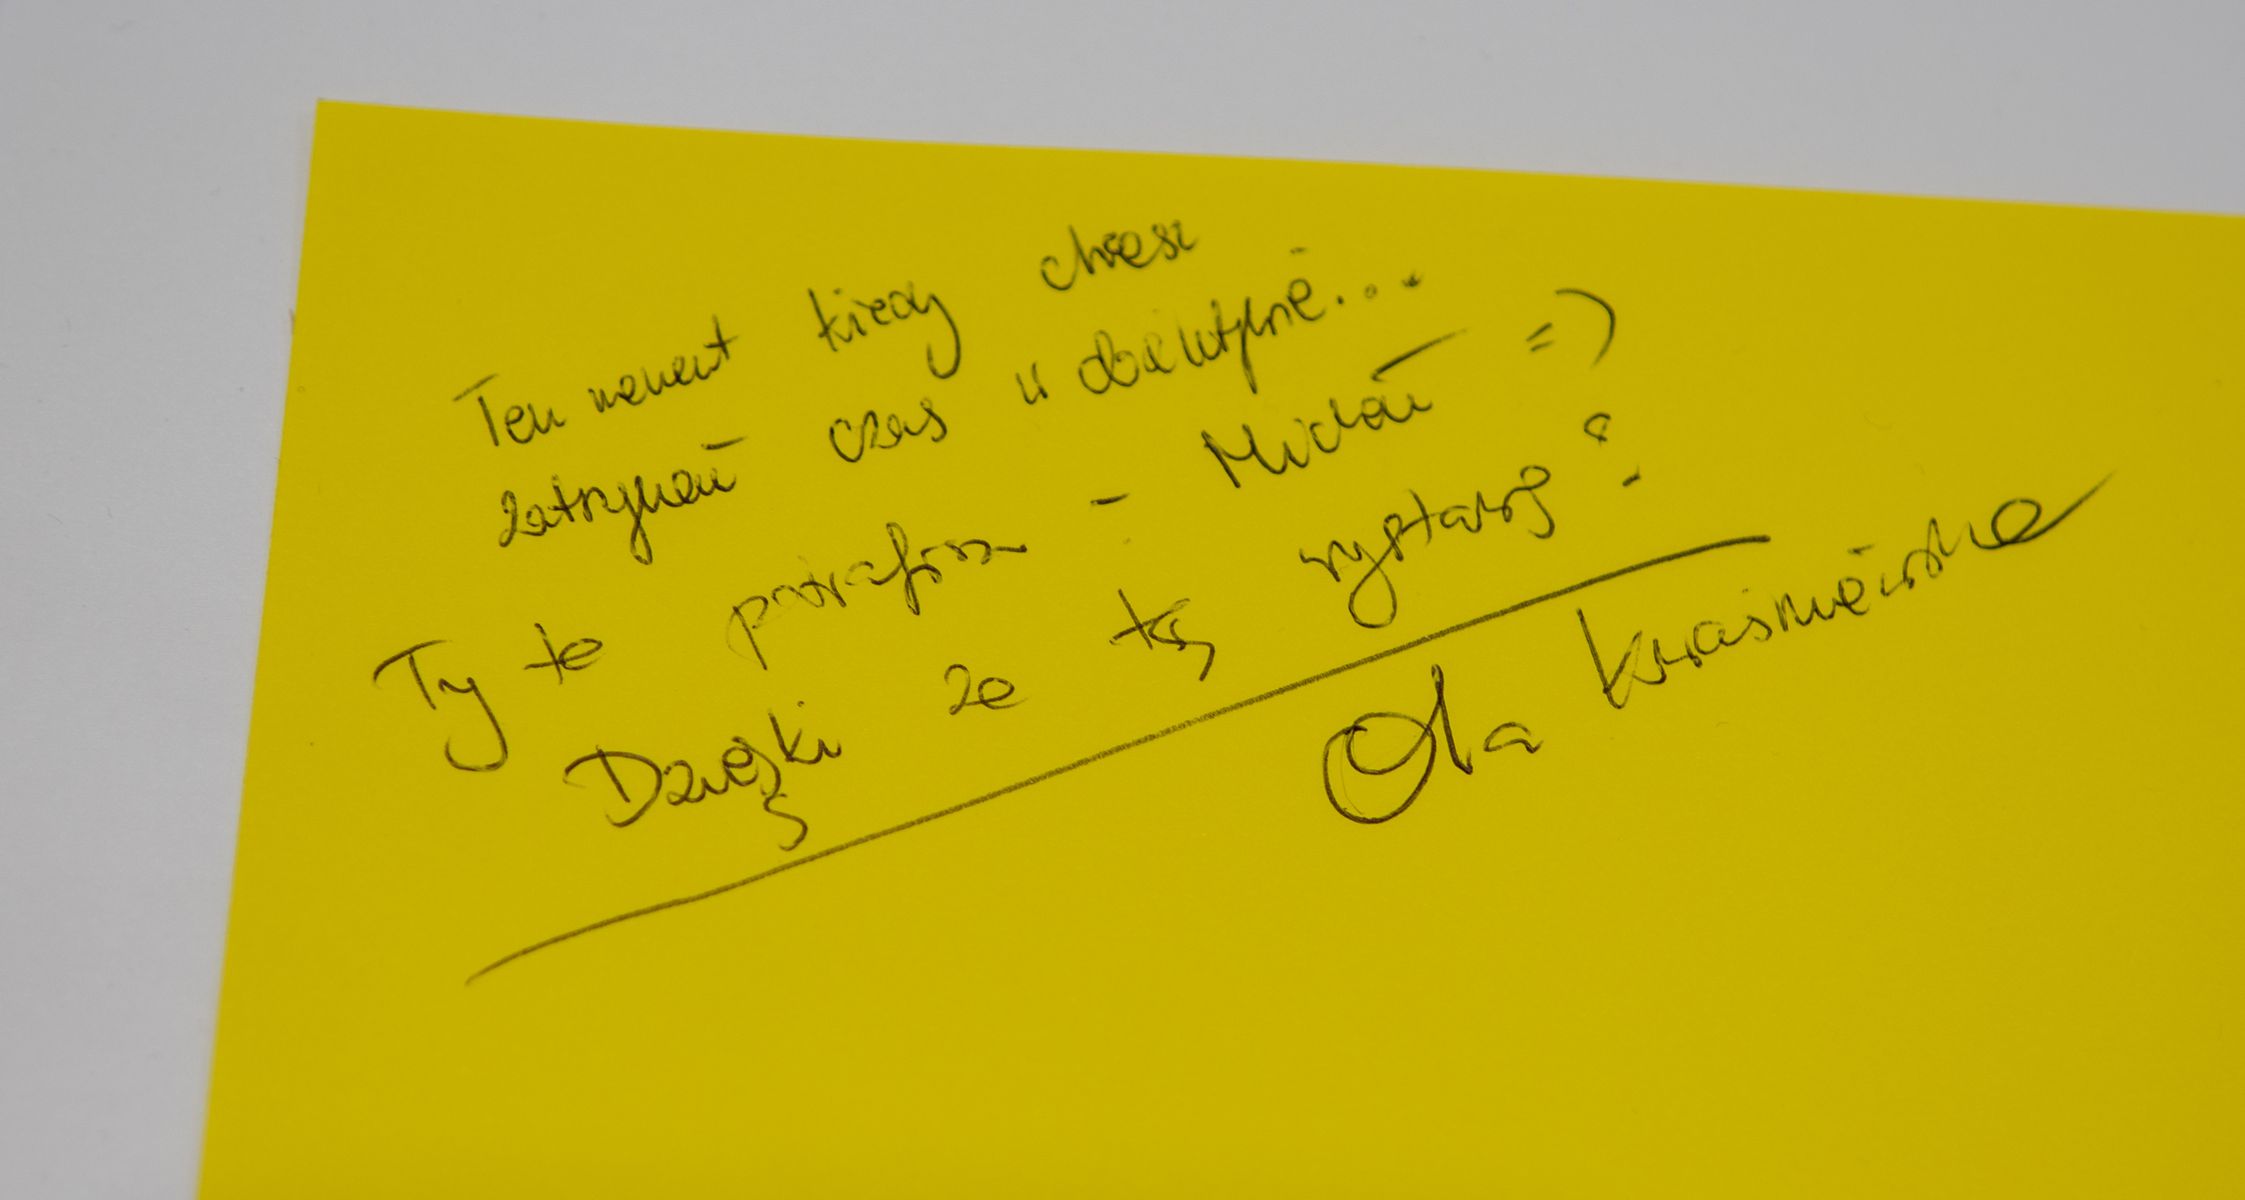 Ten moment kiedy chcesz
zatrzymać czas w obiektywie...
Ty to potrafisz - Michał =)
Dzięki za tę wystawę!
Ola